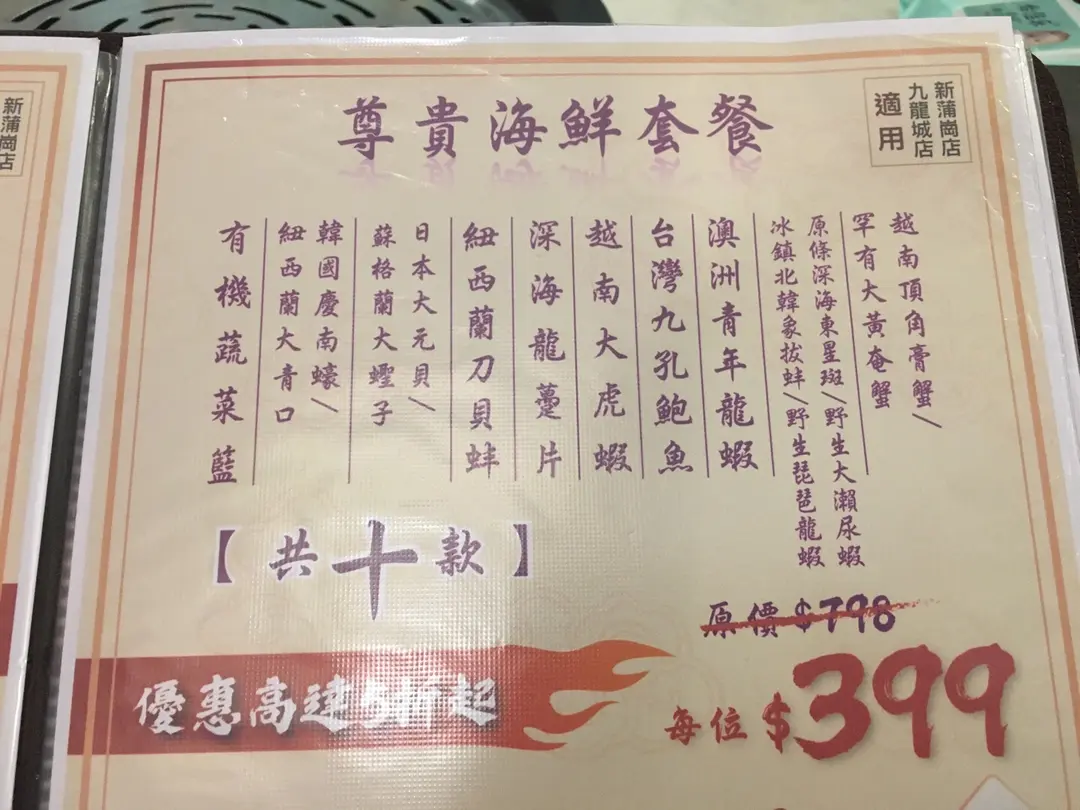 尊貴海鮮套餐
新蒲崗店
九龍城店
適用
越南頂角膏蟹/
罕有大黃奄蟹
原條深海東星斑/野生大瀨尿蝦
冰鎮北韓象拔蚌/野生琵琶龍蝦
澳洲青年龍蝦
台灣九孔鮑魚
越南大虎蝦
深海龍躉片
紐西蘭刀貝蚌
日本大元貝/
蘇格蘭大蟶子
韓國慶南蠔/
紐西蘭大青口
有機蔬菜籃
【共十款】
原價$798
優惠高達5折起
每位$399
新蒲崗店